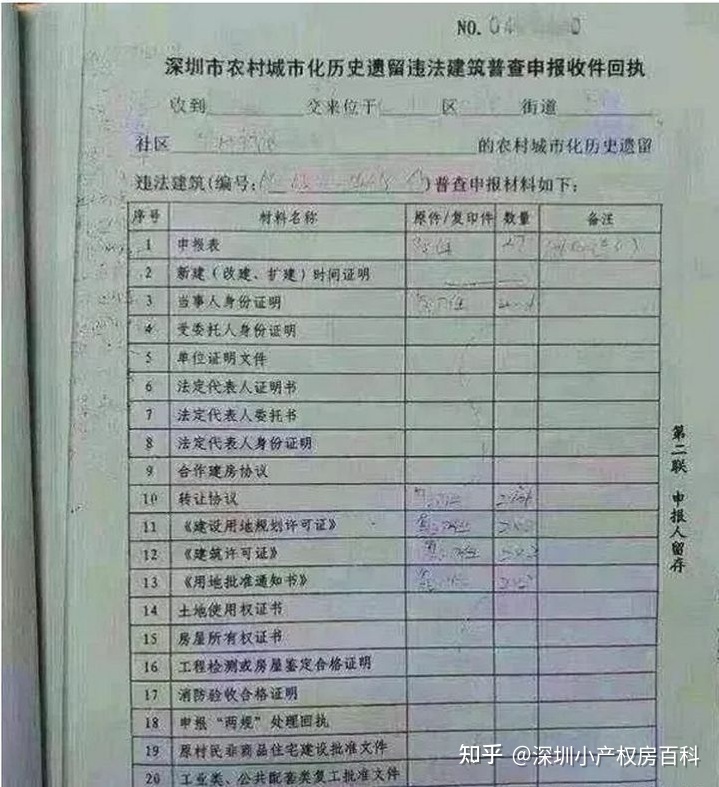 NO. 04
深圳市农村城市化历史遗留违法建筑普查申报收件回执
收到 交来位于 区 街道
社区 的农村城市化历史遗留
违法建筑(编号: )普查申报材料如下:
序号 材料名称 原件/复印件 数量 备注
1 申报表
2 新建(改建、扩建)时间证明
3 当事人身份证明
4 受委托人身份证明
5 单位证明文件
6 法定代表人证明书
7 法定代表人委托书
8 法定代表人身份证明
9 合作建房协议
10 转让协议
11 《建设用地规划许可证》
12 《建筑许可证》
13 《用地批准通知书》
14 土地使用权证书
15 房屋所有权证书
16 工程检测或房屋鉴定合格证明
17 消防验收合格证明
18 申报“两规”处理回执
19 原村民非商品住宅建设批准文件
20 工业类、公共配套类复工批准文件
第二联 申报人留存
知乎 @深圳小产权房百科